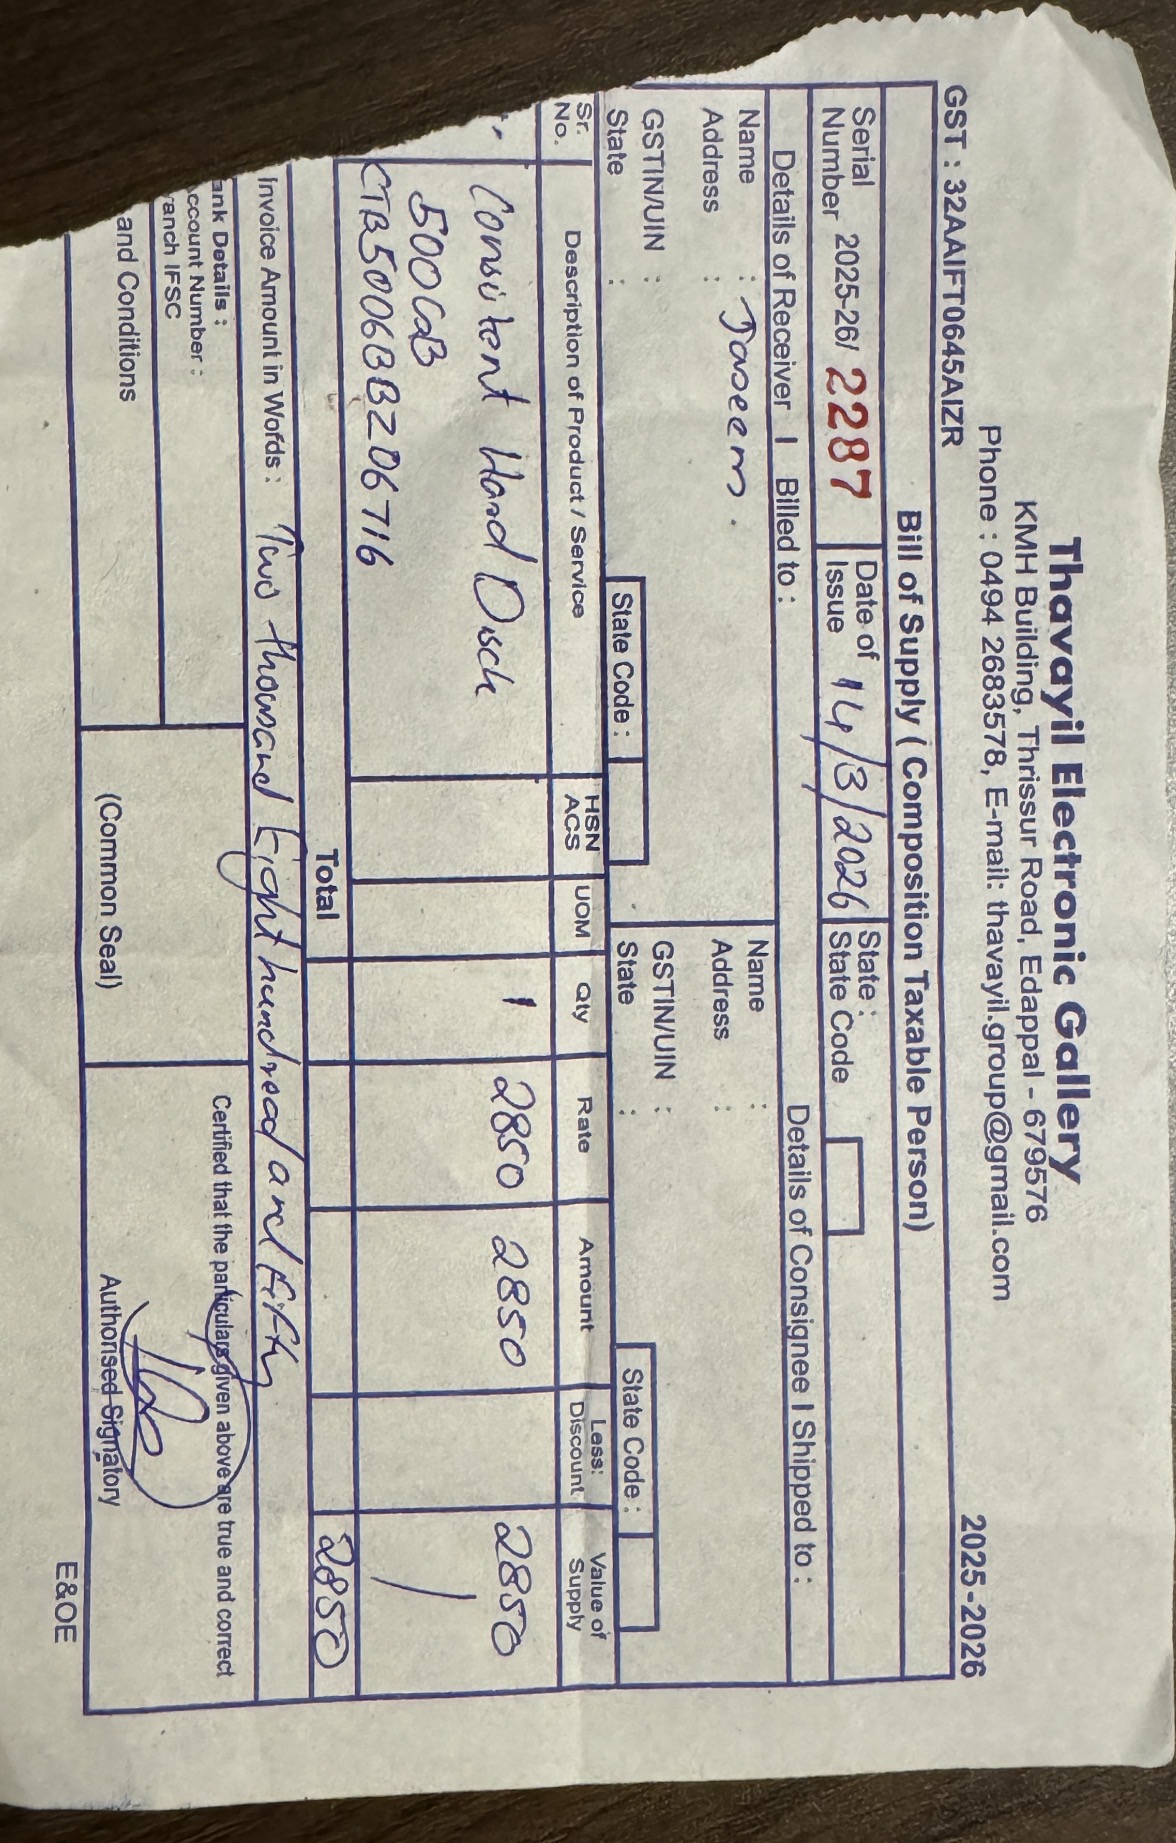 Thavayil Electronic Gallery
KMH Building, Thrissur Road, Edappal - 679576
Phone : 0494 2683578, E-mail: thavayil.group@gmail.com
GST : 32AAIFT0645AIZR 2025-2026
Bill of Supply ( Composition Taxable Person)
Serial Number 2025-26/ 2287 Date of Issue 14/3/2026 State : State Code
Details of Receiver I Billed to : Details of Consignee I Shipped to :
Name : Jaseem. Name :
Address : Address :
GSTIN/UIN : GSTIN/UIN :
State : State Code : State : State Code :
Sr. No. Description of Product / Service HSN ACS UOM Qty Rate Amount Less: Discount Value of Supply
Consitent Hard Disck 1 2850 2850 2850
500GB
CTB5006BBZ06716
Total 2850
Invoice Amount in Words : Two thousand Eight hundread and fifty
ank Details :
ccount Number :
ranch IFSC
and Conditions
(Common Seal)
Certified that the particulars given above are true and correct
Authorised Signatory
E&OE